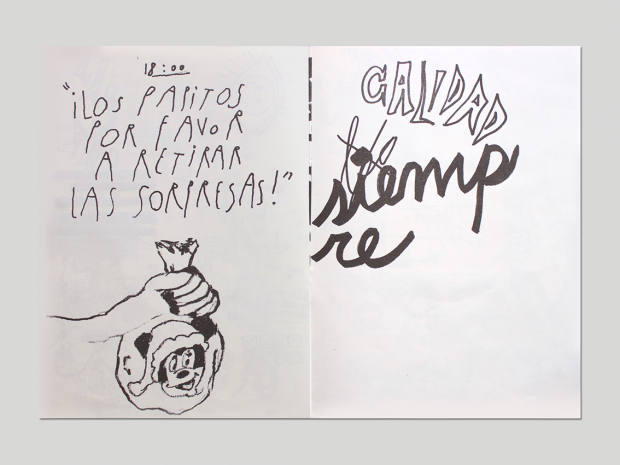 18:00
"¡LOS PAPITOS
POR FAVOR
A RETIRAR
LAS SORPRESAS!"
CALIDAD
de
siemp
re